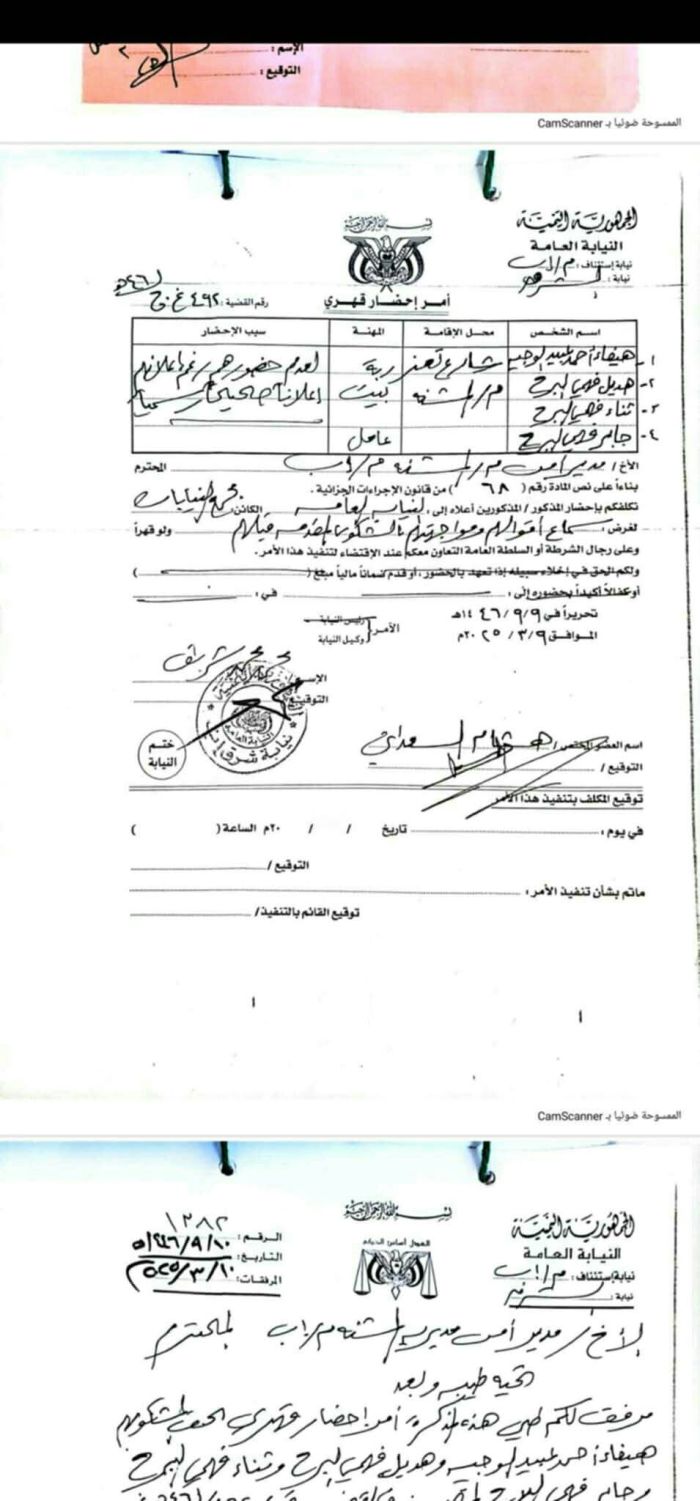 الإسم :
التوقيع :
الممسوحة ضوئيا بـ CamScanner
بسم الله الرحمن الرحيم
الجمهورية اليمنية
النيابة العامة
نيابة إستئناف : م/إب
نيابة : شرق
أمر إحضار قهري
رقم القضية : ٤٩٢ غ.ج
اسم الشخص محل الإقامة المهنة سبب الإحضار
١- هيفاء أحمد عبيد الوجيه شارع تعز ربة لعدم حضورهم رغم اعلانهم
٢- هديل فهمي البرح م/المشنه بيت اعلاناً صحيحاً
٣- ثناء فهمي البرح
٤- جابر فهمي البرح عامل
الأخ / مدير أمن م/المشنه م/إب المحترم
بناءاً على نص المادة رقم ( ٦٨ ) من قانون الإجراءات الجزائية .
نكلفكم بإحضار المذكور / المذكورين أعلاه إلى : النيابه العامه الكائن بمجمع النيابات
لغرض : سماع أقوالهم ومواجهتهم بالشكوى المقدمه قبلهم ولو قهراً
وعلى رجال الشرطة أو السلطة العامة التعاون معكم عند الإقتضاء لتنفيذ هذا الأمر .
ولكم الحق في إخلاء سبيله إذا تعهد بالحضور، أو قدم ضماناً مالياً مبلغ ( )
أو كفالاً أكيداً بحضوره إلى : في :
تحريراً في ٩/٩/١٤٤٦هـ
المـوافـق ٩/٣/٢٠٢٥م
الآمر { رئيس النيابة
وكيل النيابة
الإسم
التوقيع
نيابة شرق إب
ختم
النيابة
اسم العضو المختص / هشام السعدي
التوقيع /
توقيع المكلف بتنفيذ هذا الأمر
في يوم : تاريخ / / ٢٠م الساعة ( )
التوقيع /
ماتم بشأن تنفيذ الأمر :
توقيع القائم بالتنفيذ /
الممسوحة ضوئيا بـ CamScanner
بسم الله الرحمن الرحيم
العدل أساس الحكم
الجمهورية اليمنية
النيابة العامة
نيابة إستئناف : م/إب
نيابة : شرق
الرقم : ١٢٨٢
التاريخ : ١٠/٩/١٤٤٦هـ
المرفقات : ١٠/٣/٢٠٢٥م
الأخ / مدير أمن مديرية المشنه م/إب المحترم
تحيه طيبه وبعد
مرفق لكم طي هذه المذكرة أمر إحضار قهري بحق المشكو بهم
هيفاء أحمد عبيد الوجيه وهديل فهمي البرح وثناء فهمي البرح
وجابر فهمي البرح